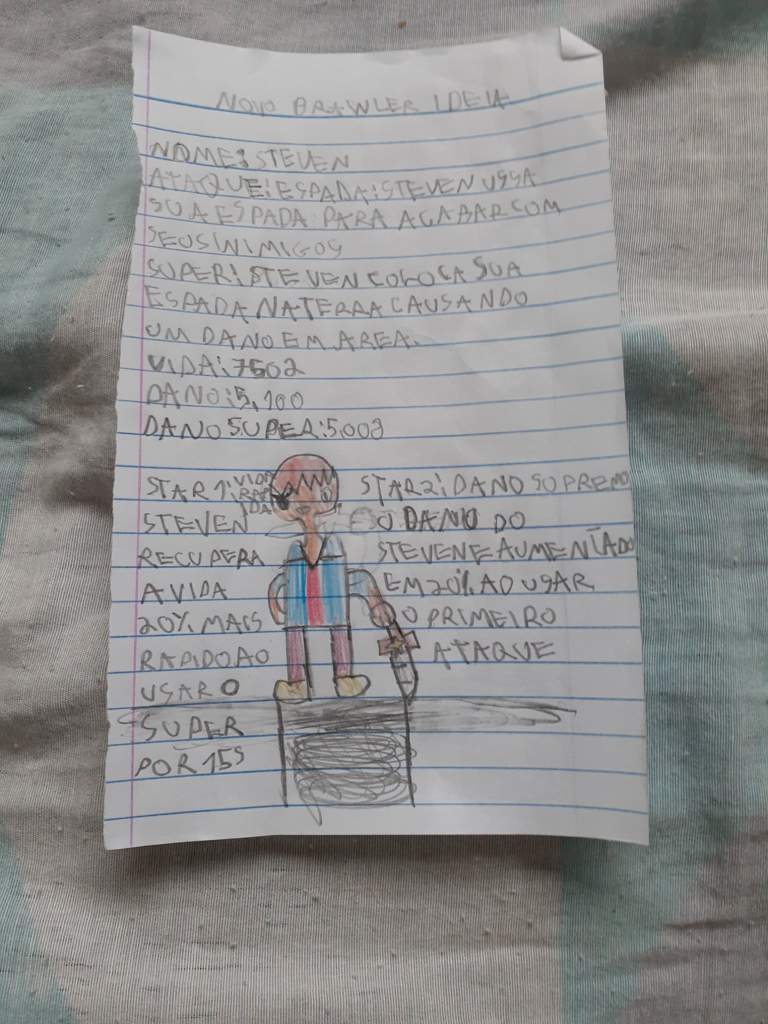 NOVO BRAWLER IDEIA
NOME: STEVEN
ATAQUE: ESPADA: STEVEN USSA
SUA ESPADA PARA ACABAR COM
SEUS INIMIGOS
SUPER: STEVEN COLOCA SUA
ESPADA NA TERRA CAUSANDO
UM DANO EM AREA.
VIDA: 7502
DANO: 5,100
DANO SUPER: 5009
STAR 1: VIDA RAPIDA
STEVEN
RECUPERA
A VIDA
20% MAIS
RAPIDO AO
USAR O
SUPER
POR 15S
STAR 2: DANO SUPREMO
O DANO DO
STEVEN E AUMENTADO
EM 20% AO USAR
O PRIMEIRO
ATAQUE